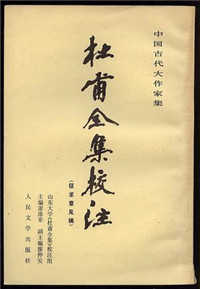 中国古代大作家集
杜甫全集校注
(征求意见稿)
山东大学《杜甫全集》校注组
主编萧涤非 副主编廖仲安
人民文学出版社